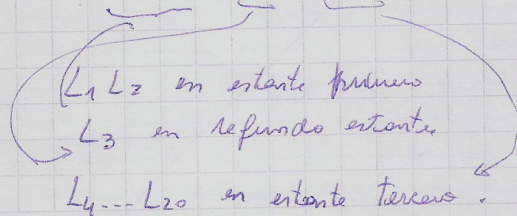 L₁ L₂ en estante primero
L₃ en segundo estante.
L₄ ... L₂₀ en estante tercero.